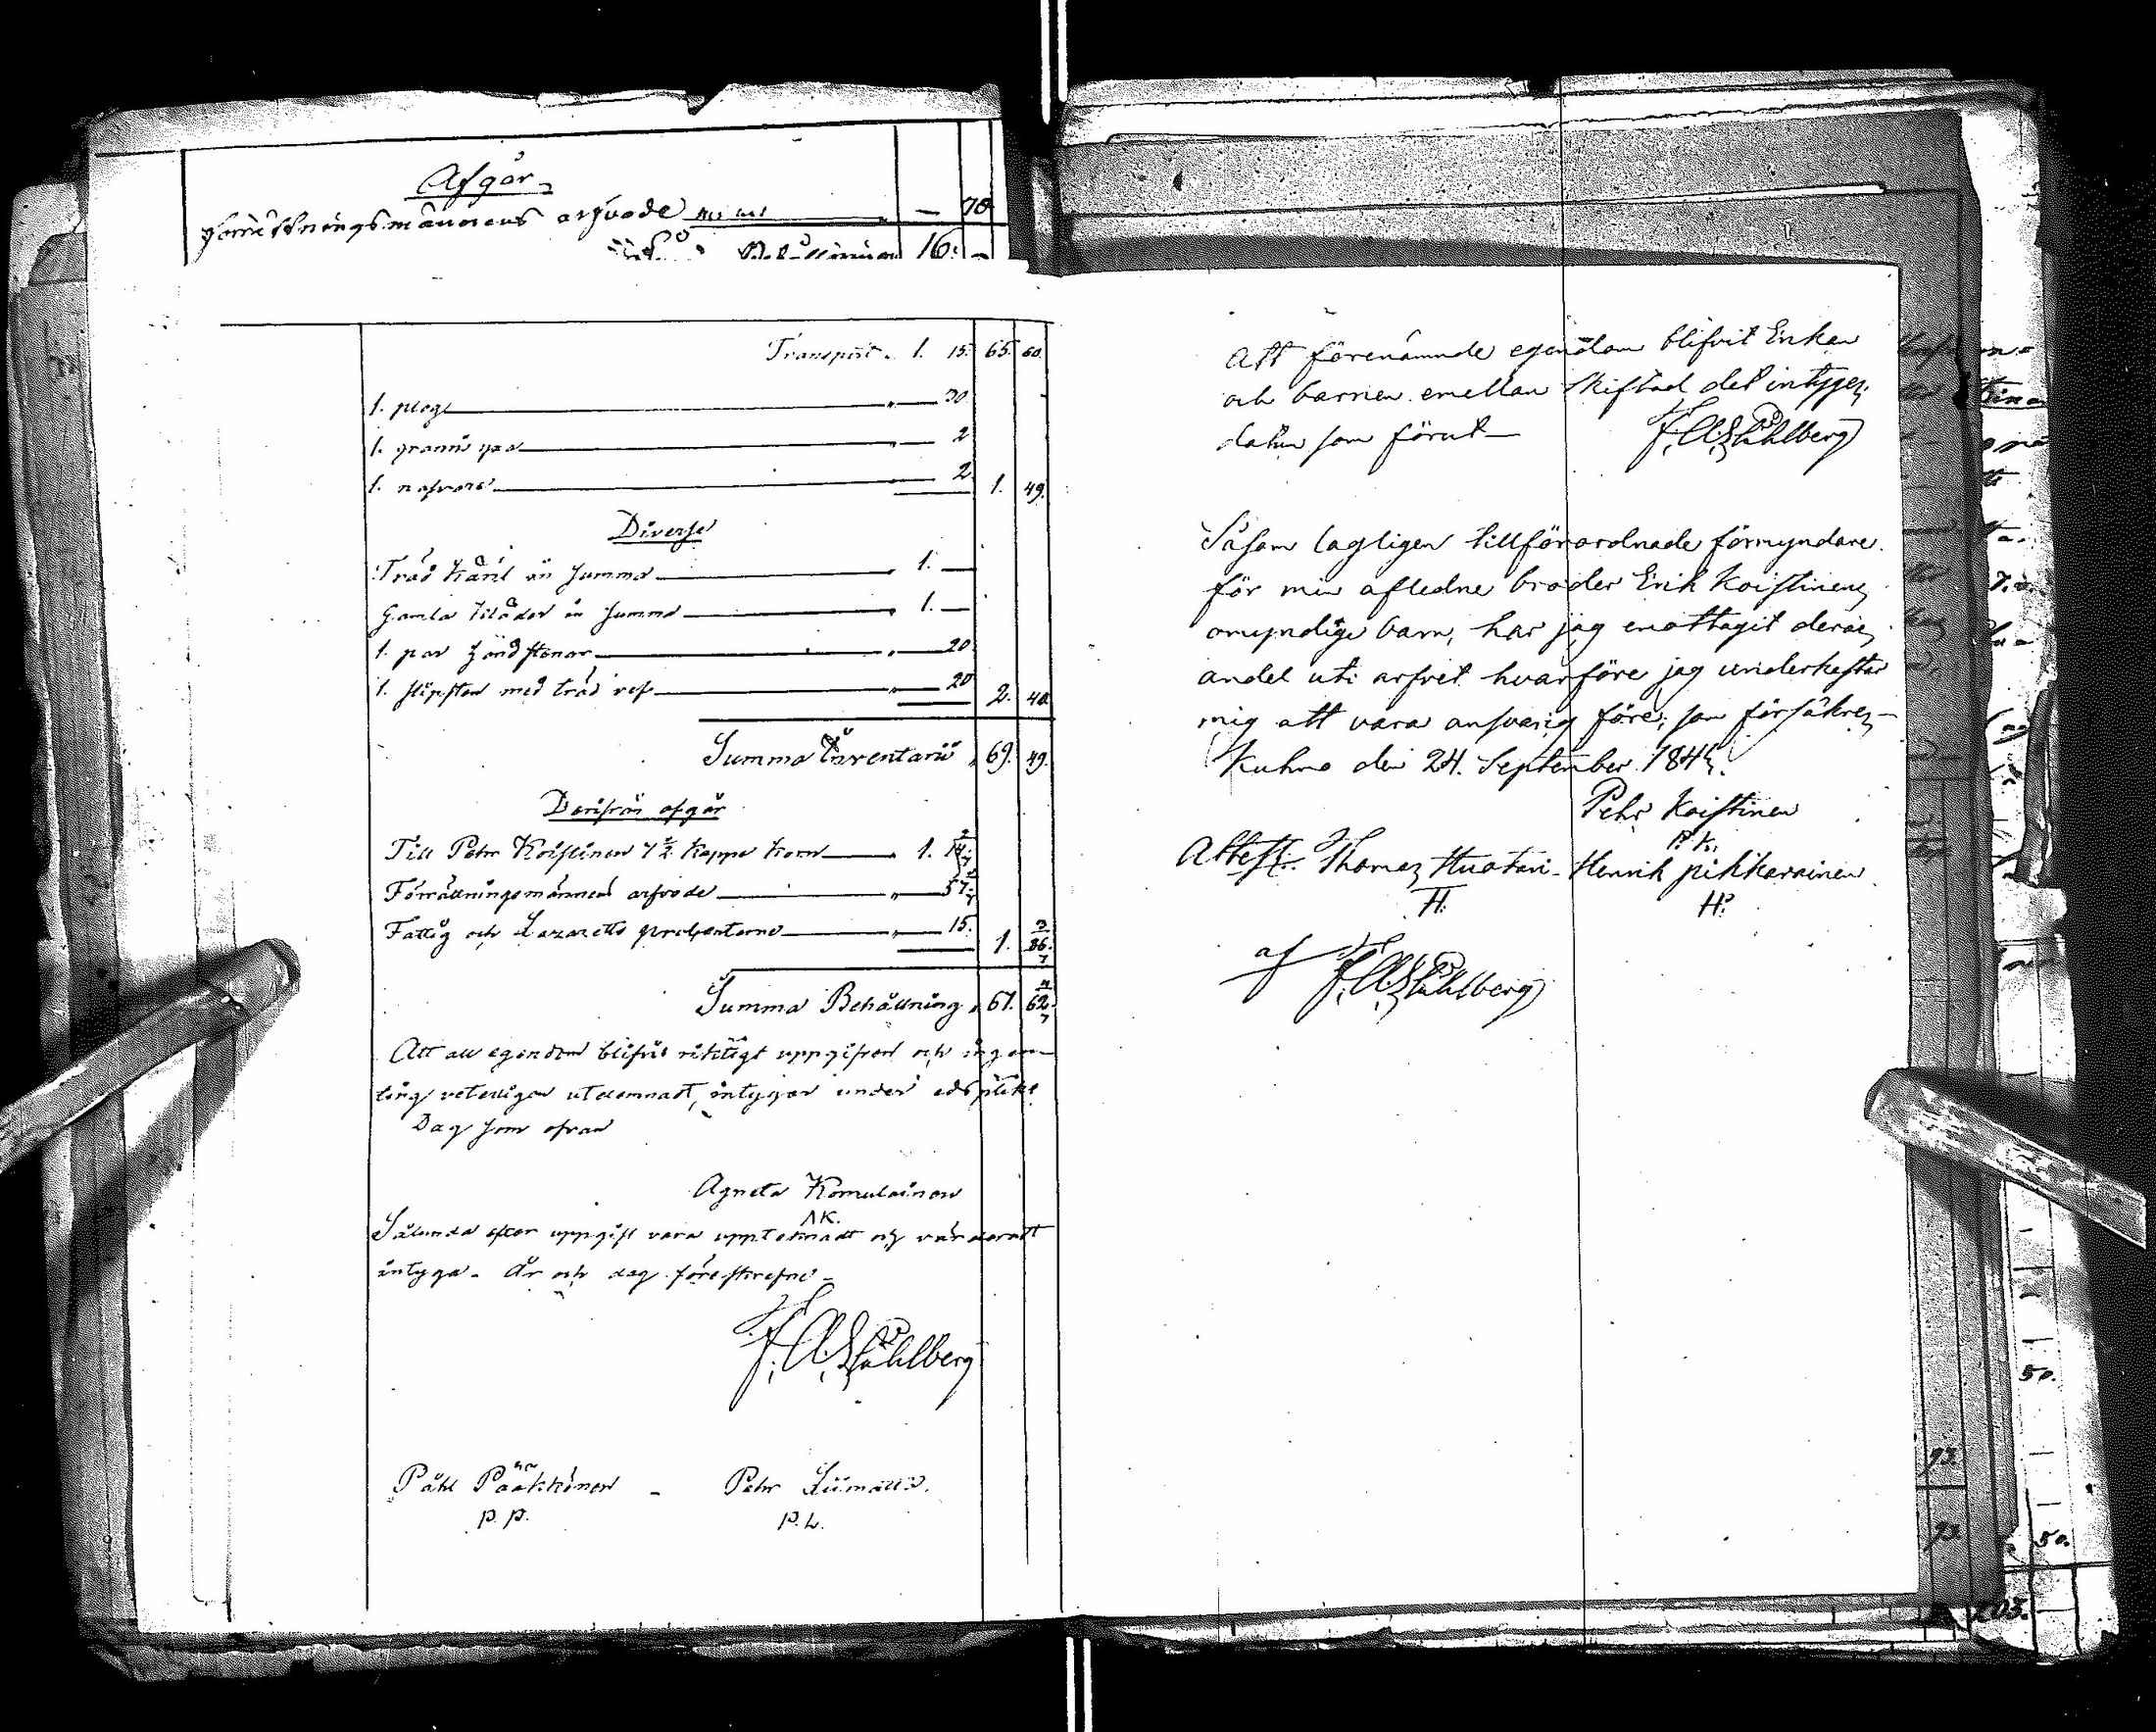 Afgår
Förrättningsmännens arfvode — 70
Behållning 16. —
Transport. 1. 15. 65. 60.
1. plog — 30
1. — 2
1. nafvare — 2 1. 49.
Diverse
Träd Käril in Summa — 1. —
Gamla Kläder in Summa — 1. —
1. par händstenar — 20
1. slipsten med träd vef — 20 2. 40
Summa Inventarii 69. 49.
Derifrån afgår
Till Pehr Koistinen 7 ½ Kappe Korn — 1.
Förrättningsmännens arfvode — 57
Fattig och Lazaretts procenterne — 15. 1. 86.
Summa Behållning 67. 62.
Att all egendom blifvit riktigt uppgifven och ingen
ting veterligen utelemnadt, intygar under eds plikt
Dag som ofvan
Agneta Komulainen
AK.
Sålunda efter uppgift vara upptecknadt och värderadt
intyga. År och dag föreskrefne
F. A. Ståhlberg
Påhl Pääkkönen – Pehr Liimatta.
P. P. P. L.
Att förenämnde egendom blifvit Enkan
och barnen emellan skiftad det intygar,
datum som förut — F. A. Ståhlberg
Såsom lagligen tillförordnade förmyndare
för min afledne broder Erik Koistinens
omyndige barn, har jag emottagit deras
andel uti arfvet hvarföre jag underkastar
mig att vara ansvarig före; som försäkras —
Kuhmo den 24. September
Pehr Koistinen
P. K.
Attest. Thomas Huotari – Henrik Pikkarainen
T. H. H. P.
af F. A. Ståhlberg
50.
93.
93 50.
203.